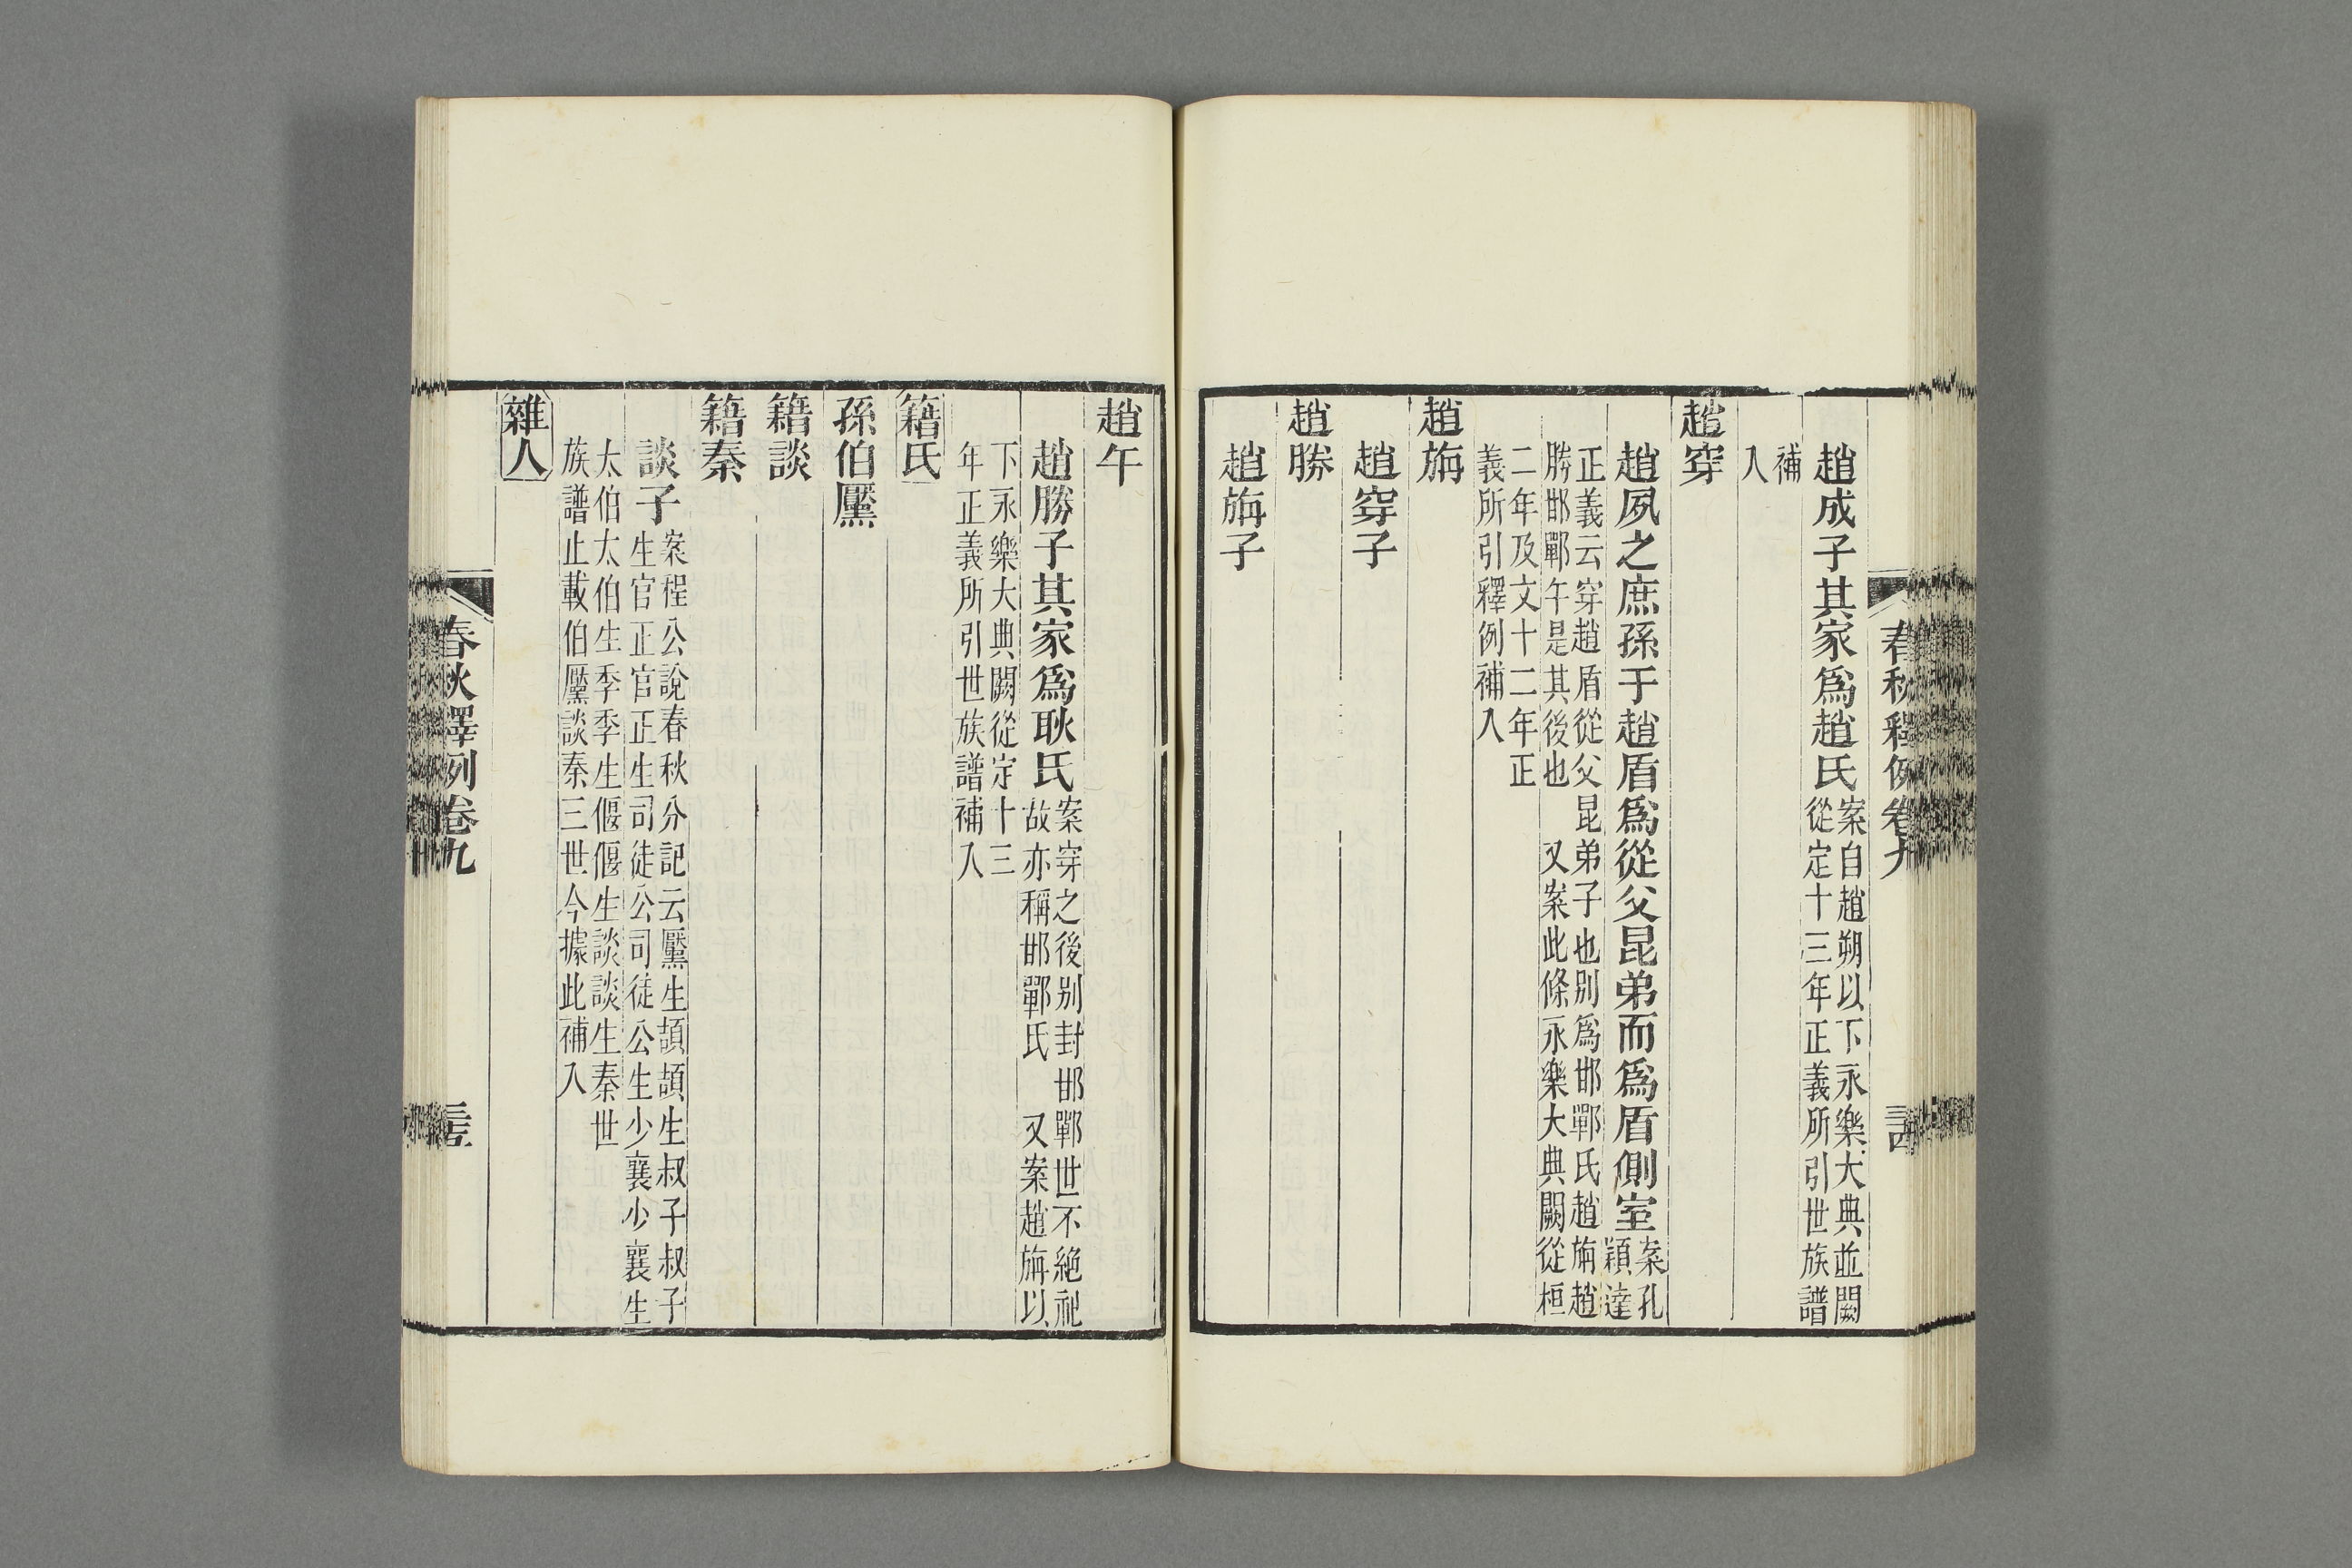 春秋釋例卷九
趙成子其家爲趙氏
案自趙朔以下永樂大典並闕
從定十三年正義所引世族譜
補
入
趙穿
趙夙之庶孫于趙盾爲從父昆弟而爲盾側室
案孔
穎達
正義云穿趙盾從父昆弟子也別爲邯鄲氏趙旃趙
勝邯鄲午是其後也　又案此條永樂大典闕從桓
二年及文十二年正
義所引釋例補入
趙旃
趙穿子
趙勝
趙旃子
趙午
趙勝子其家爲耿氏
案穿之後別封邯鄲世不絕祀
故亦稱邯鄲氏　又案趙旃以
下永樂大典闕從定十三
年正義所引世族譜補入
籍氏
孫伯黶
籍談
籍秦
談子
案程公說春秋分記云黶生頡頡生叔子叔子
生官正官正生司徒公司徒公生少襄少襄生
太伯太伯生季季生偃偃生談談生秦世
族譜止載伯黶談秦三世今據此補入
雜人
春秋釋例卷九